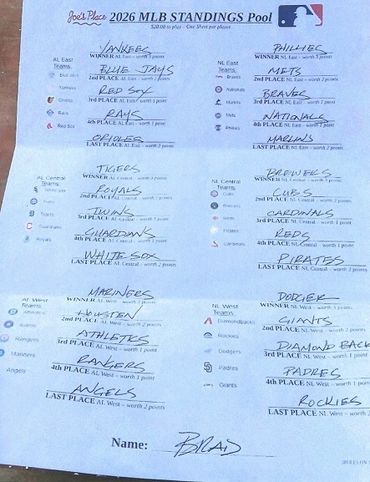 Joe's Place 2026 MLB STANDINGS Pool
$20.00 to play - One Sheet per player
YANKEES
WINNER AL East - worth 2 points
NL East
Teams:
Blue Jays
BLUE JAYS
2nd PLACE AL East - worth 1 point
Yankees
RED SOX
3rd PLACE AL East - worth 1 point
Orioles
RAYS
4th PLACE AL East - worth 1 point
Rays
Red Sox
ORIOLES
LAST PLACE AL East - worth 2 points
PHILLIES
WINNER NL East - worth 2 points
NL East
Teams:
Braves
METS
2nd PLACE NL East - worth 1 point
Nationals
BRAVES
3rd PLACE NL East - worth 1 point
Marlins
Mets
NATIONALS
4th PLACE NL East - worth 1 point
Phillies
MARLINS
LAST PLACE NL East - worth 2 points
TIGERS
WINNER AL Central - worth 2 points
AL Central
Teams:
ROYALS
2nd PLACE AL Central - worth 1 point
TWINS
3rd PLACE AL Central - worth 1 point
Tigers
GUARDIANS
4th PLACE AL Central - worth 1 point
Guardians
Royals
WHITE SOX
LAST PLACE AL Central - worth 2 points
BREWERS
WINNER NL Central - worth 2 points
NL Central
Teams:
Cubs
CUBS
2nd PLACE NL Central - worth 1 point
Brewers
CARDINALS
3rd PLACE NL Central - worth 1 point
Reds
REDS
4th PLACE NL Central - worth 1 point
Pirates
Cardinals
PIRATES
LAST PLACE NL Central - worth 2 points
MARINERS
WINNER AL West - worth 2 points
AL West
Teams:
Athletics
HOUSTEN
2nd PLACE AL West - worth 1 point
Astros
ATHLETICS
3rd PLACE AL West - worth 1 point
Rangers
RANGERS
4th PLACE AL West - worth 1 point
Mariners
Angels
ANGELS
LAST PLACE AL West - worth 2 points
WINNER NL West - worth 2 points
NL West
Teams:
Diamondbacks
GIANTS
2nd PLACE NL West - worth 1 point
Rockies
DIAMOND BACK
3rd PLACE NL West - worth 1 point
Dodgers
PADRES
4th PLACE NL West - worth 1 point
Padres
Giants
ROCKIES
LAST PLACE NL West - worth 2
Name: BRAD